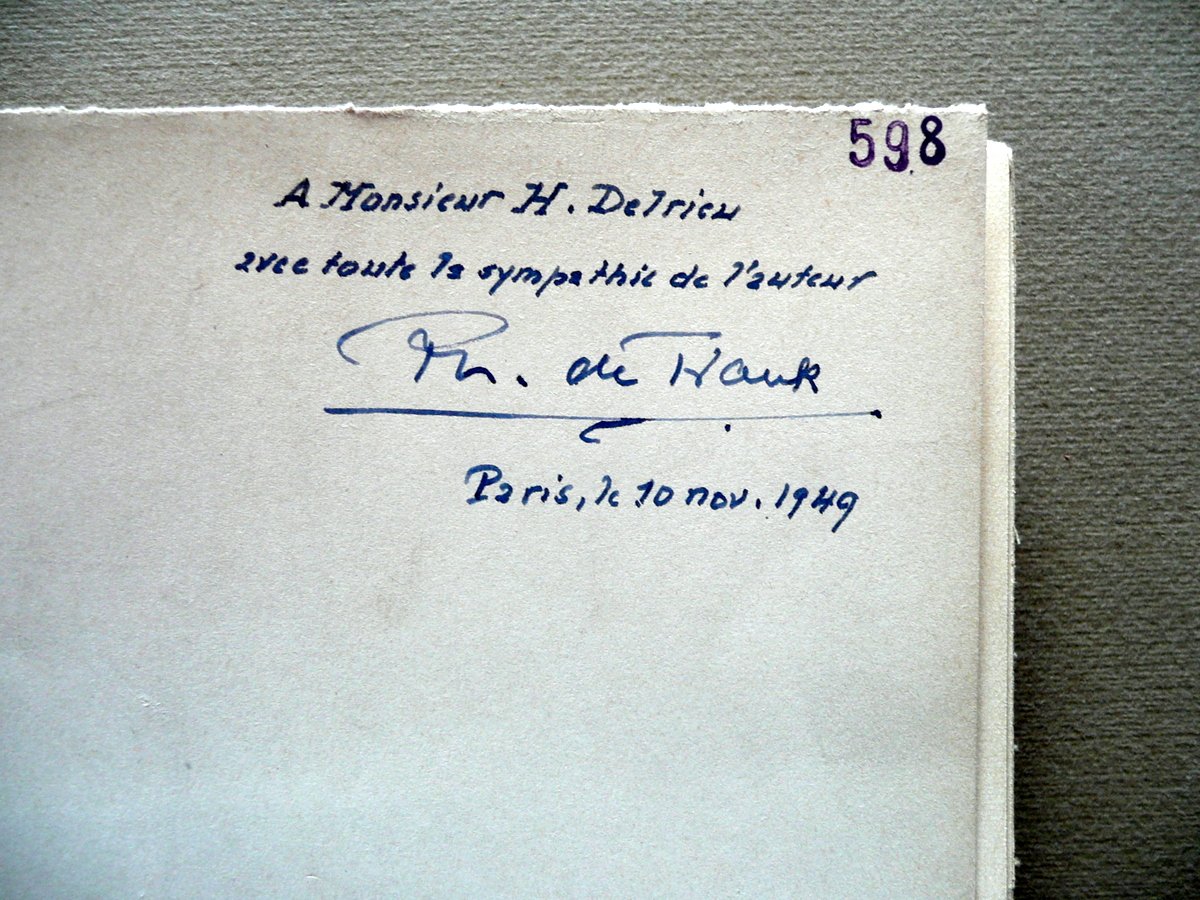 598
A Monsieur H. Delrieu
avec toute la sympathie de l'auteur
Ph. de
Paris, le 10 nov. 1949